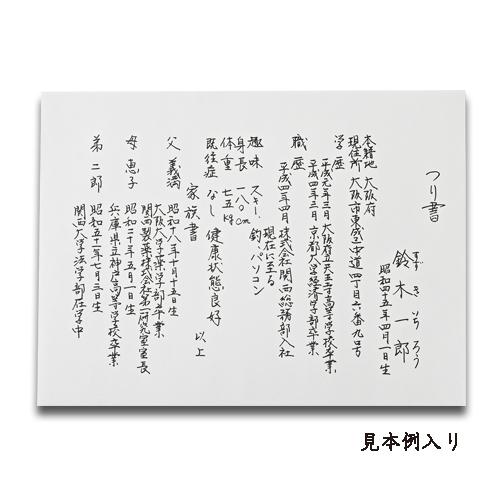 つり書
鈴木一郎
すずきいちろう
昭和四十五年四月一日生
本籍地 大阪府
現住所 大阪市東成区中道四丁目六番九号
学歴
平成元年三月 大阪府立天王寺高等学校卒業
平成四年三月 京都大学経済学部卒業
職歴
平成四年四月 株式会社関西総務部入社
現在に至る
趣味 スキー、釣、パソコン
身長 一八〇cm
体重 七五kg
既往症 なし 健康状態良好
以上
家族書
父 義満 昭和十八年十月十五日生
大阪大学薬学部卒業
関西製薬株式会社第一研究室室長
母 恵子 昭和二十年五月一日生
兵庫県立神戸高等学校卒業
弟 二郎 昭和五十一年七月三日生
関西大学法学部在学中
見本例入り